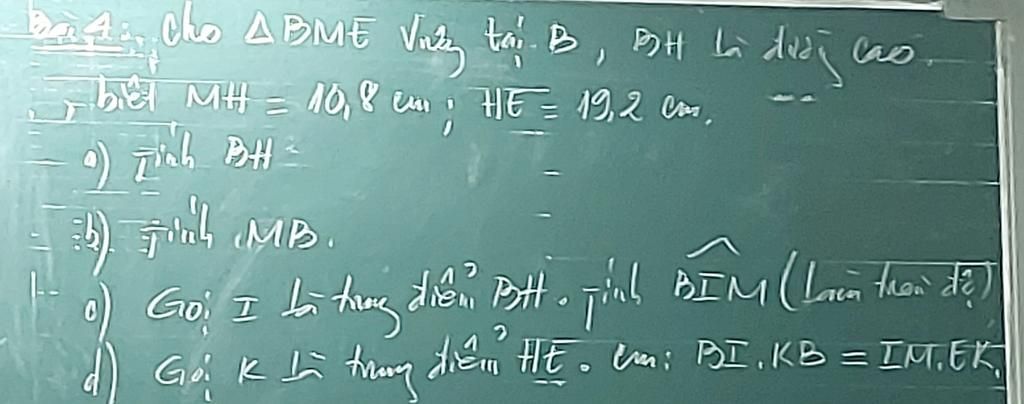 Bài 4: Cho △BME vuông tại B, BH là đường cao.
, biết MH = 10,8 cm; HE = 19,2 cm.
a) Tính BH
b) Tính MB.
c) Gọi I là trung điểm BH. Tính \widehat{BIM} (làm tròn độ)
d) Gọi K là trung điểm HE. Cm: BI.KB = IM.EK.